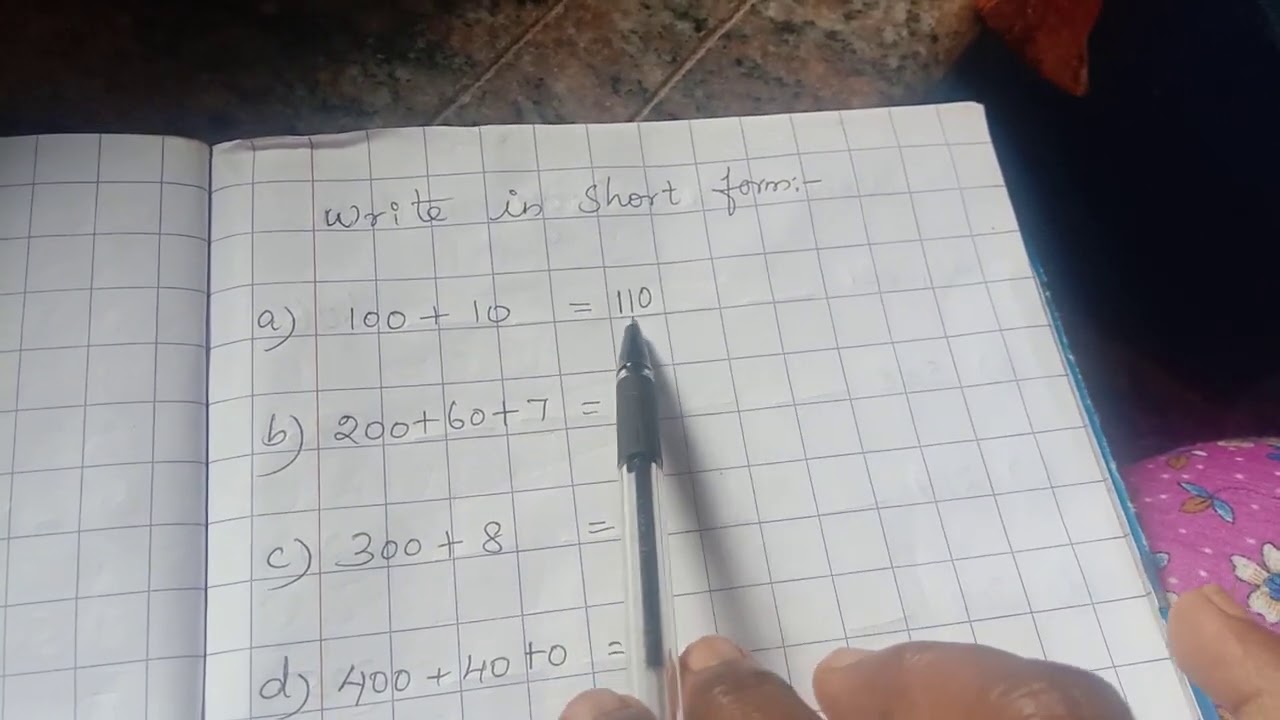 Write in Short form:-
a) 100 + 10 = 110
b) 200+60+7 =
c) 300 + 8 =
d) 400 + 40 +0 =